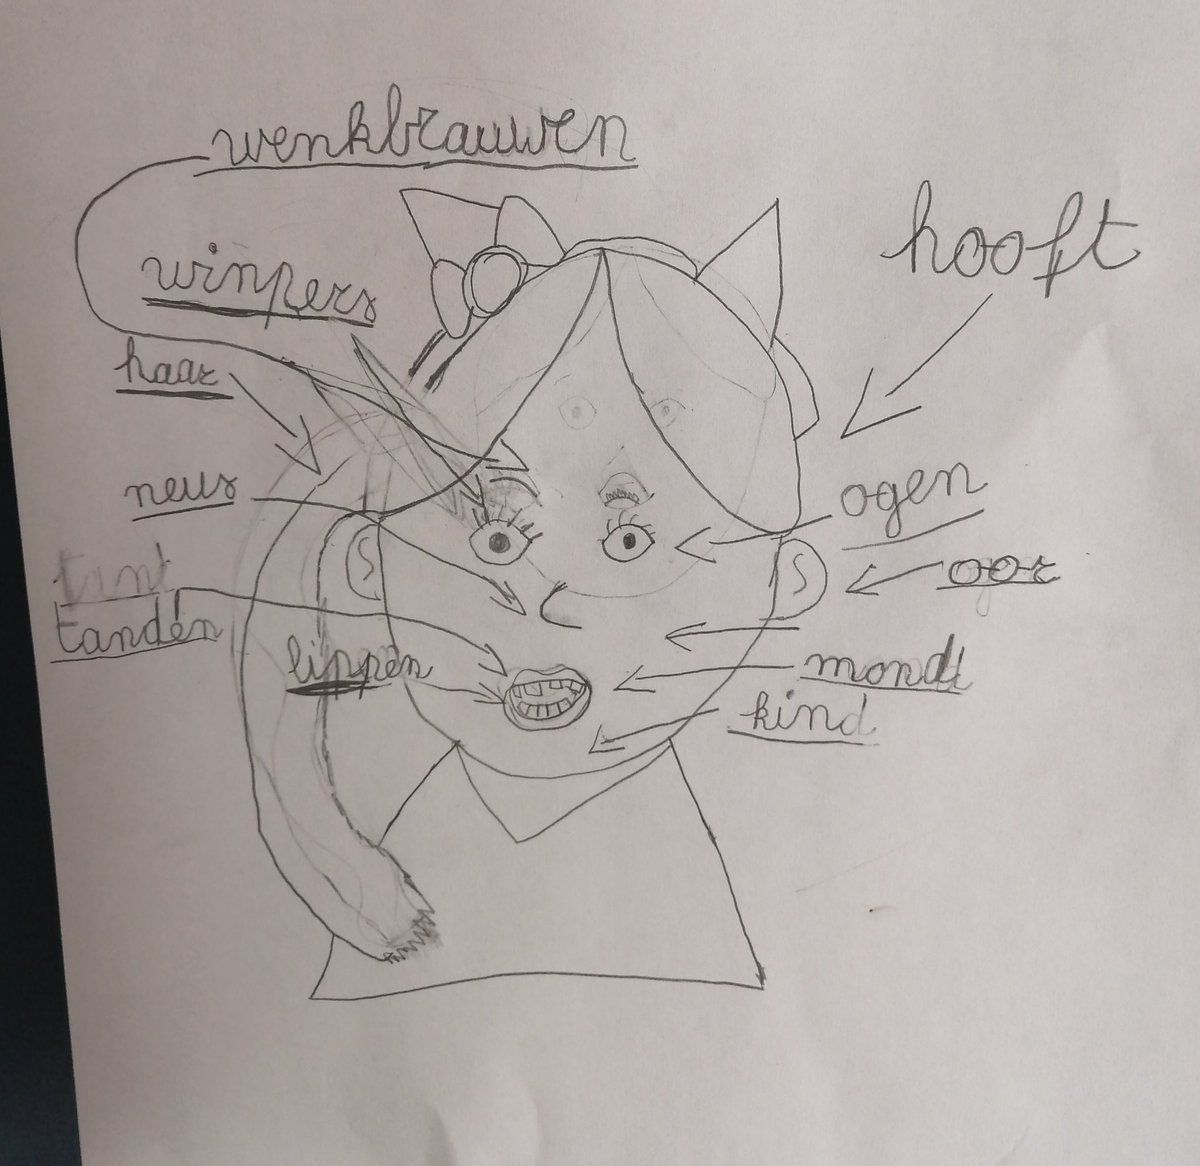 wenkbrauwen
hooft
winpers
haar
neus
ogen
oor
tant
tanden
lippen
mond
kind